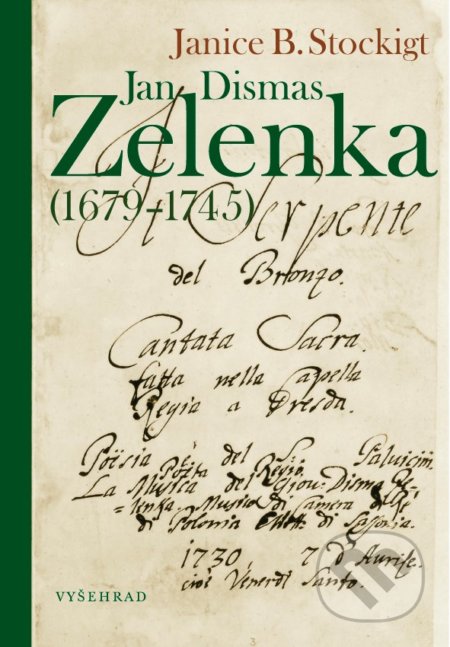 Janice B. Stockigt
Jan Dismas
Zelenka
(1679–1745)
Il Serpente
del Bronzo.
Cantata Sacra.
fatta nella Capella
Regia a Dresda.
Poësia del Si
Poëta Regio
La Musica del Giov: Disma Ze=
=lenka Musico di Camera
di Polonia Elett: di Sassonia.
1730 7 d'
cioè Venerdi Santo.
VYŠEHRAD
3